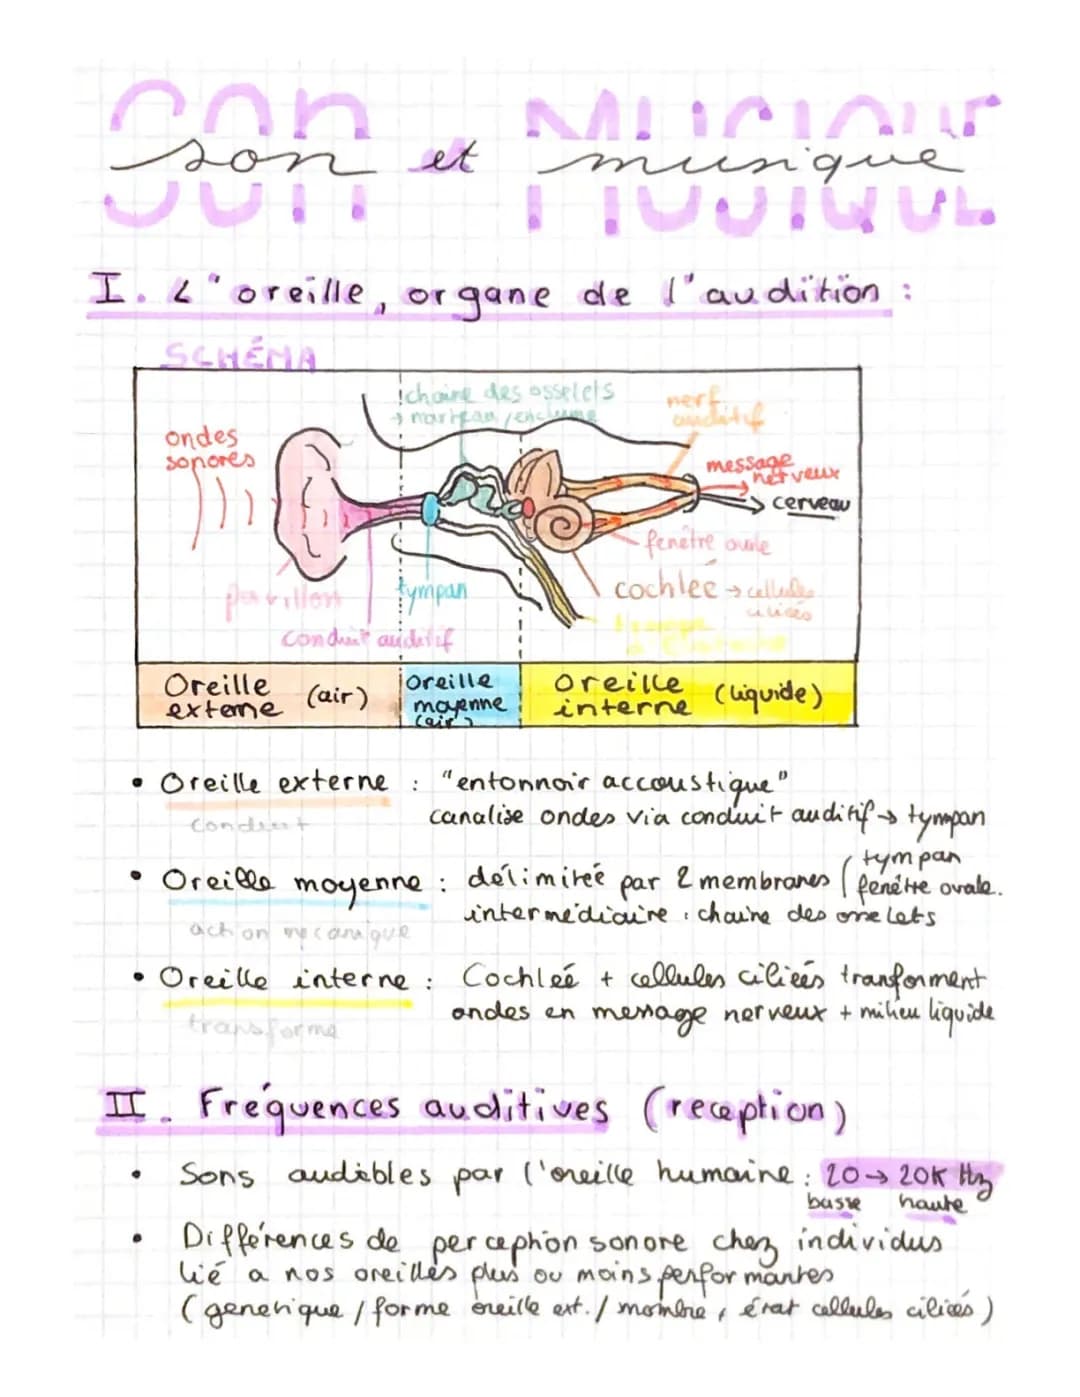 son et musique
I. L'oreille, organe de l'audition :
SCHÉMA
chaine des osselets
→ marteau / enclume
nerf
auditif
ondes
sonores
message
nerveux
→ cerveau
fenêtre ovale
pavillon
tympan
cochleé → cellules
ciliées
conduit auditif
Oreille
externe (air)
Oreille
moyenne
(air)
Oreille
interne (liquide)
• Oreille externe : "entonnoir accoustique"
conduit
canalise ondes via conduit auditif → tympan
• Oreille moyenne : délimiteé par 2 membranes ( tympan
fenêtre ovale.
intermédiaire : chaine des osselets
action mécanique
• Oreille interne : Cochleé + cellules cilieés tranforment
ondes en message nerveux + milieu liquide
transforme
II. Fréquences auditives (reception)
• Sons audibles par l'oreille humaine : 20 → 20K Hz
basse haute
• Différences de perception sonore chez individus
lié a nos oreilles plus ou moins performantes
(genetique / forme oreille ext. / nombre, état cellules ciliées)